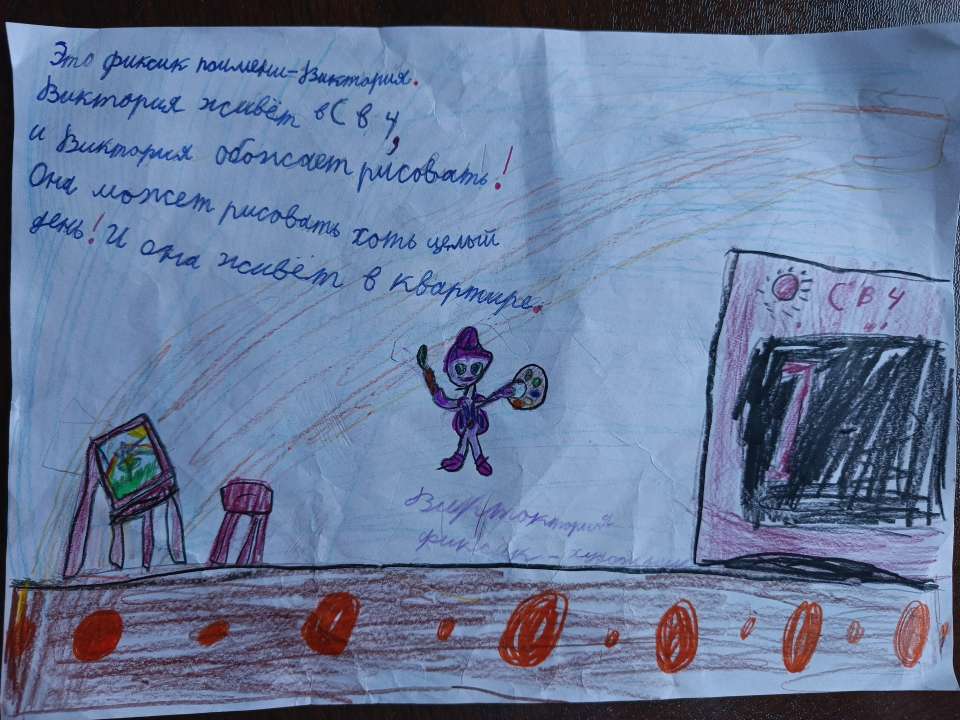 Это фиксик поимени-Виктория.
Виктория живёт в С В Ч,
и Виктория обожает рисовать!
Она может рисовать хоть целый
день! И она живёт в квартире.
С В Ч
фиксик-